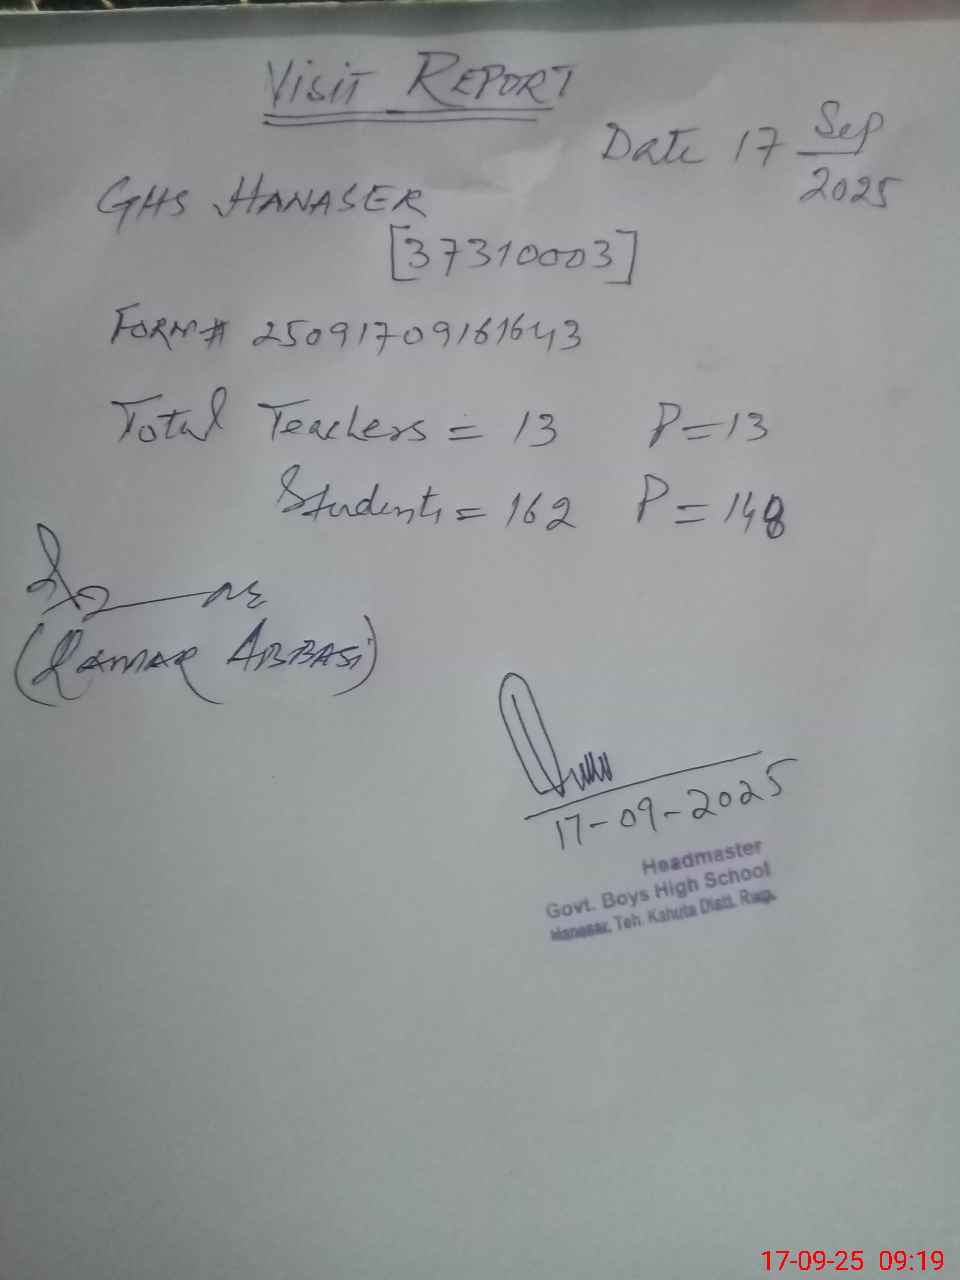 VISIT REPORT
Date 17 Sep
2025
GHS HANASER
[37310003]
FORM# 25091709161643
Total Teachers = 13 P=13
Students = 162 P = 148
(QAMAR ABBASI)
17-09-2025
Headmaster
Govt. Boys High School
Hanesar, Teh. Kahuta Distt. Rwp.
17-09-25 09:19